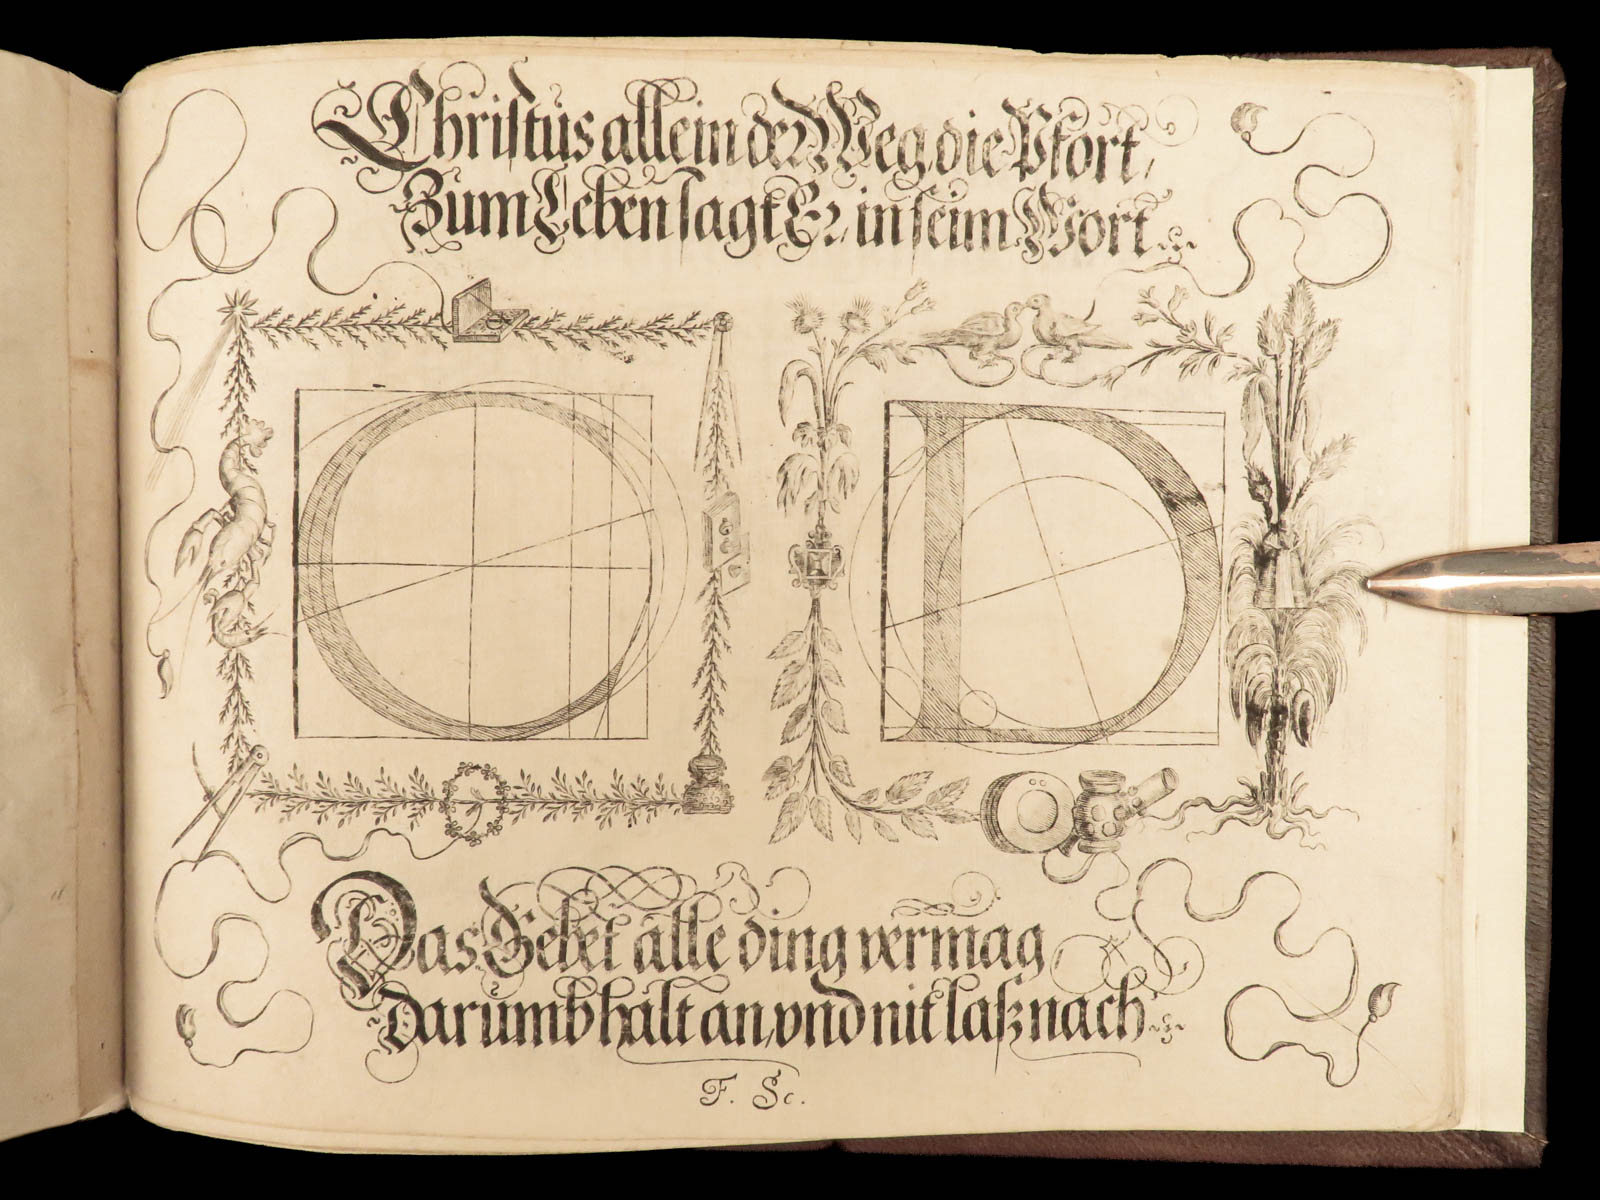 Christus allein der Weg die Pfort,
Zum Leben sagt Er, in seim Wort.
C D
Das Gebet alle ding vermag,
Darumb halt an, vnd nit laß nach.
F. Sc.